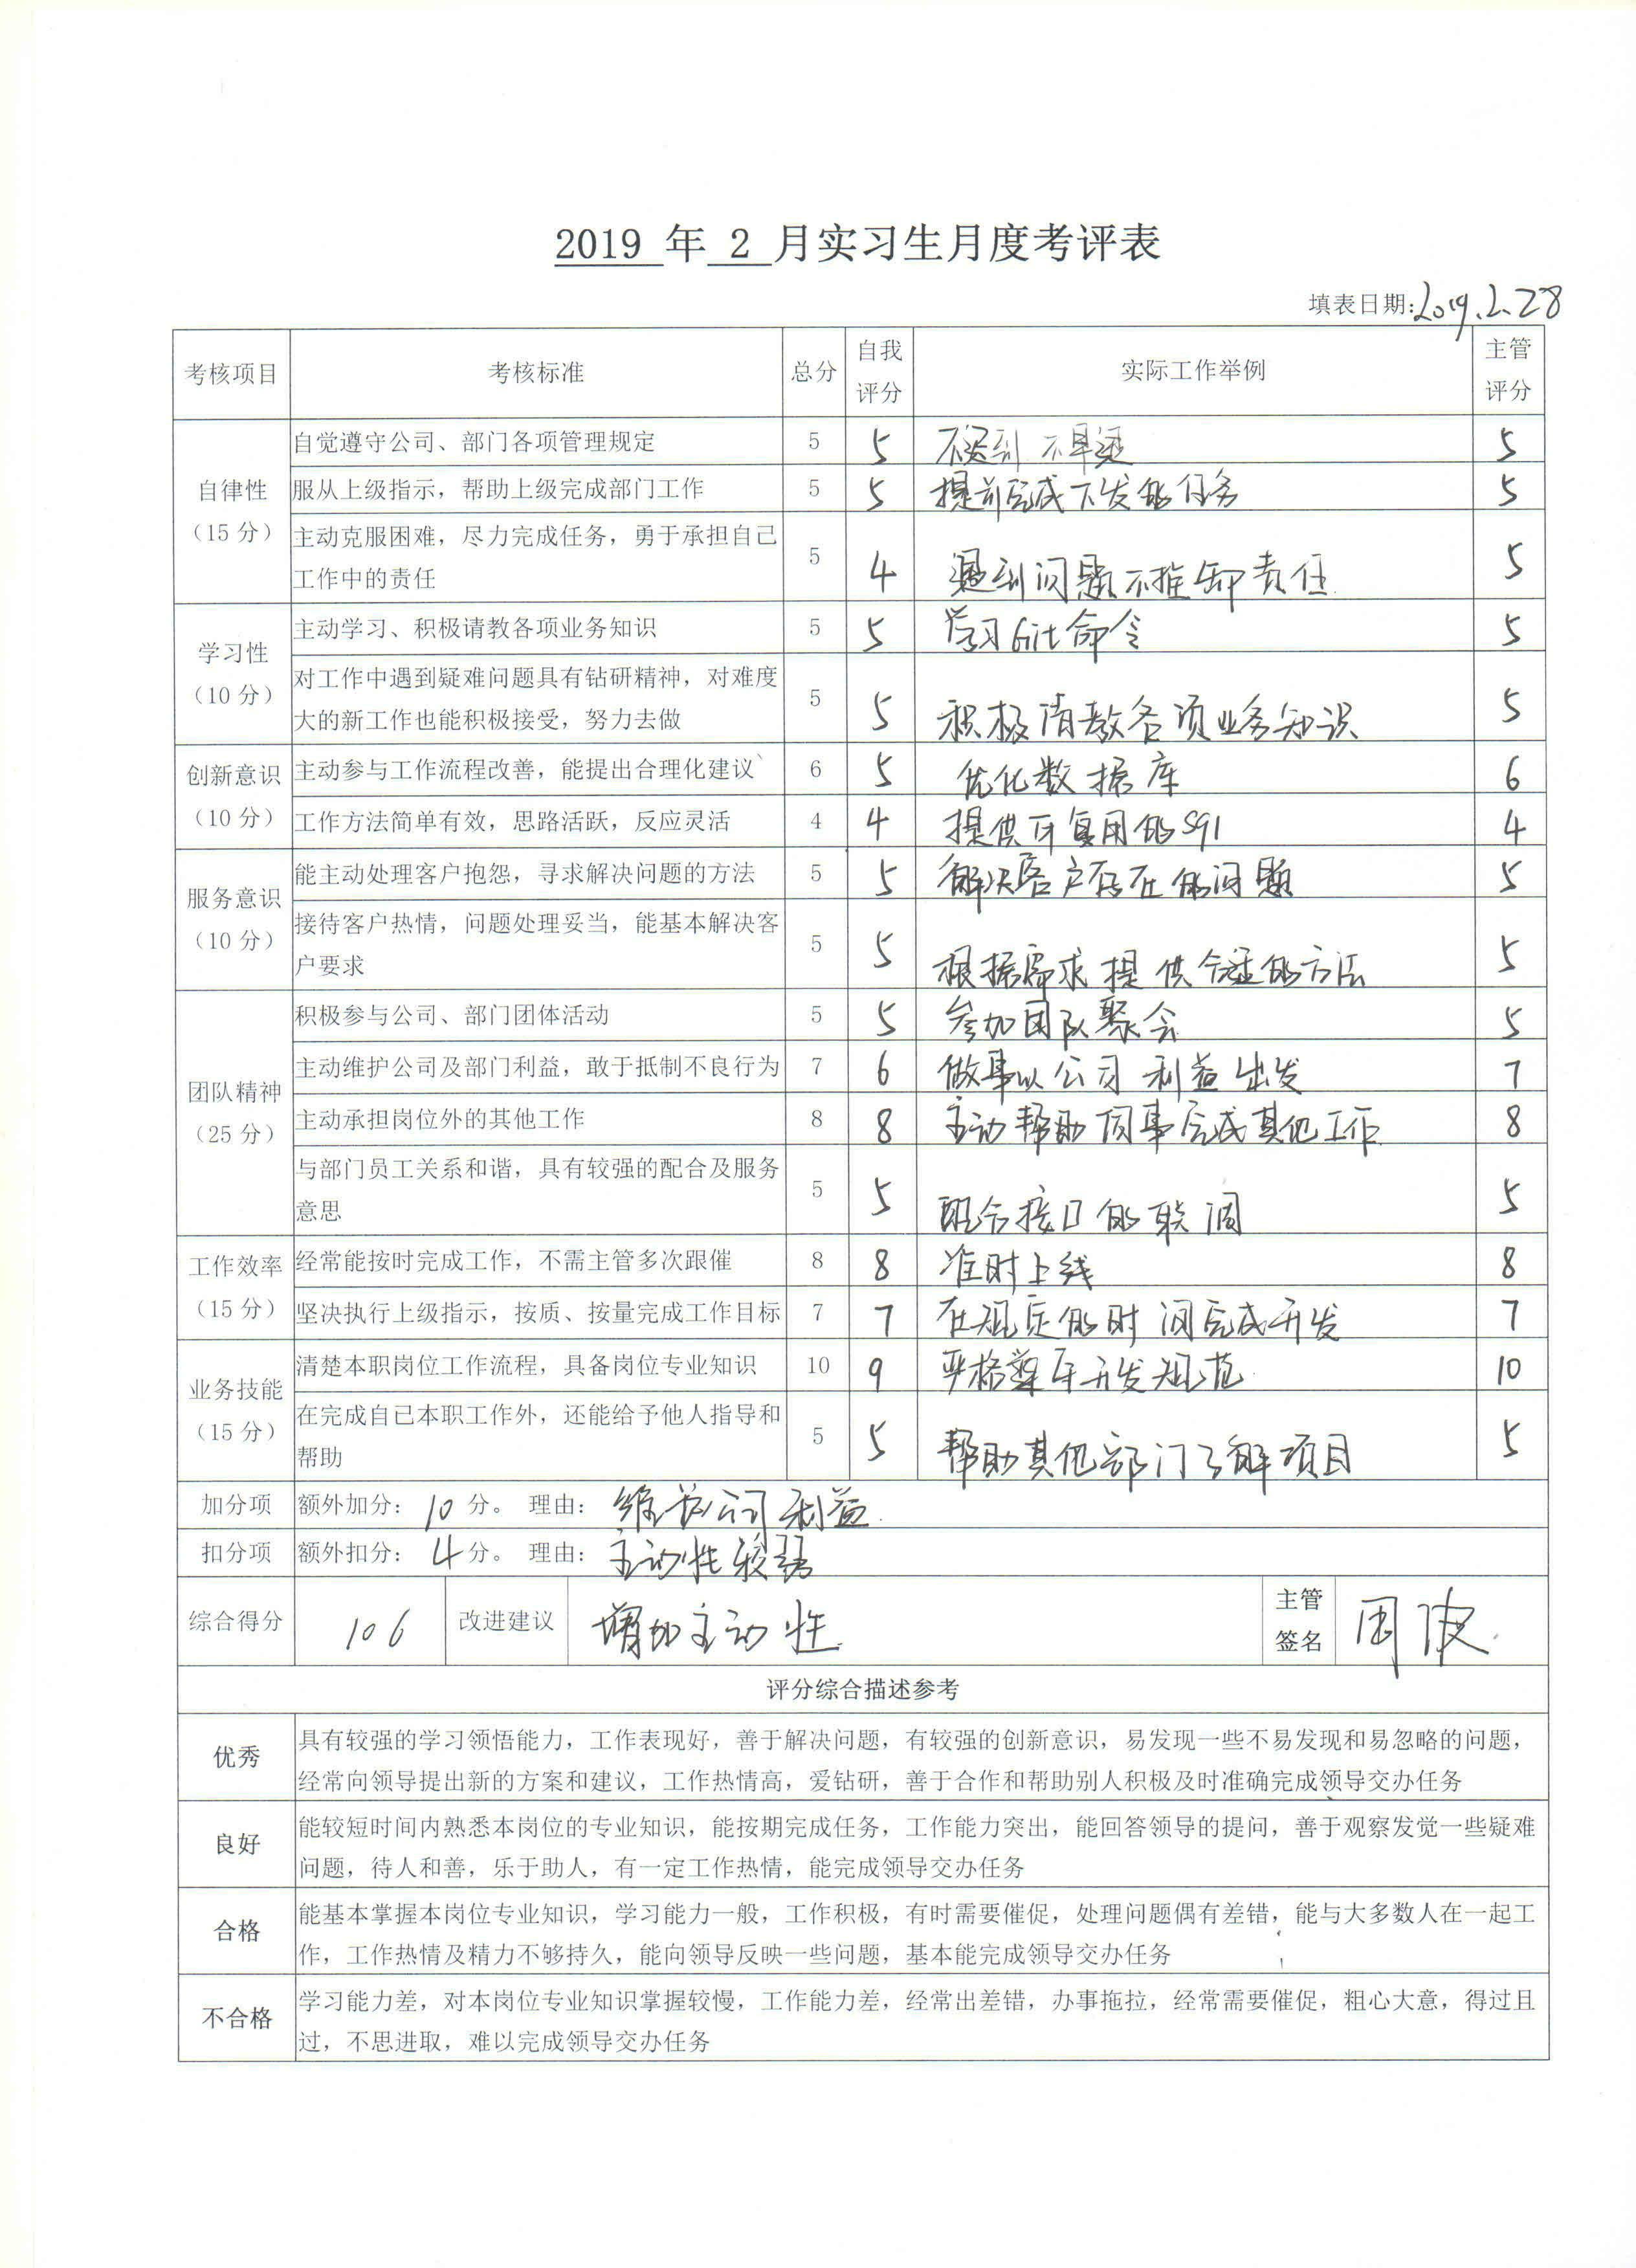 2019 年 2 月实习生月度考评表
填表日期：2019.2.28
考核项目 考核标准 总分 自我评分 实际工作举例 主管评分
自律性（15 分）
自觉遵守公司、部门各项管理规定 5 5 不迟到 不早退 5
服从上级指示，帮助上级完成部门工作 5 5 提前完成下发的任务 5
主动克服困难，尽力完成任务，勇于承担自己
工作中的责任 5 4 遇到问题不推卸责任 5
学习性（10 分）
主动学习、积极请教各项业务知识 5 5 学习Git命令 5
对工作中遇到疑难问题具有钻研精神，对难度
大的新工作也能积极接受，努力去做 5 5 积极请教各项业务知识 5
创新意识（10 分）
主动参与工作流程改善，能提出合理化建议、 6 5 优化数据库 6
工作方法简单有效，思路活跃，反应灵活 4 4 提供可复用的sql 4
服务意识（10 分）
能主动处理客户抱怨，寻求解决问题的方法 5 5 解决客户存在的问题 5
接待客户热情，问题处理妥当，能基本解决客
户要求 5 5 根据需求提供合适的方法 5
团队精神（25 分）
积极参与公司、部门团体活动 5 5 参加团队聚会 5
主动维护公司及部门利益，敢于抵制不良行为 7 6 做事以公司利益出发 7
主动承担岗位外的其他工作 8 8 主动帮助同事完成其他工作 8
与部门员工关系和谐，具有较强的配合及服务
意思 5 5 配合接口的联调 5
工作效率（15 分）
经常能按时完成工作，不需主管多次跟催 8 8 准时上线 8
坚决执行上级指示，按质、按量完成工作目标 7 7 在规定的时间完成开发 7
业务技能（15 分）
清楚本职岗位工作流程，具备岗位专业知识 10 9 严格遵守开发规范 10
在完成自已本职工作外，还能给予他人指导和
帮助 5 5 帮助其他部门了解项目 5
加分项 额外加分：10 分。 理由：维护公司利益.
扣分项 额外扣分：4 分。 理由：主动性较弱
综合得分 106 改进建议 增加主动性 主管签名
评分综合描述参考
优秀 具有较强的学习领悟能力，工作表现好，善于解决问题，有较强的创新意识，易发现一些不易发现和易忽略的问题，
经常向领导提出新的方案和建议，工作热情高，爱钻研，善于合作和帮助别人积极及时准确完成领导交办任务
良好 能较短时间内熟悉本岗位的专业知识，能按期完成任务，工作能力突出，能回答领导的提问，善于观察发觉一些疑难
问题，待人和善，乐于助人，有一定工作热情，能完成领导交办任务
合格 能基本掌握本岗位专业知识，学习能力一般，工作积极，有时需要催促，处理问题偶有差错，能与大多数人在一起工
作，工作热情及精力不够持久，能向领导反映一些问题，基本能完成领导交办任务
不合格 学习能力差，对本岗位专业知识掌握较慢，工作能力差，经常出差错，办事拖拉，经常需要催促，粗心大意，得过且
过，不思进取，难以完成领导交办任务